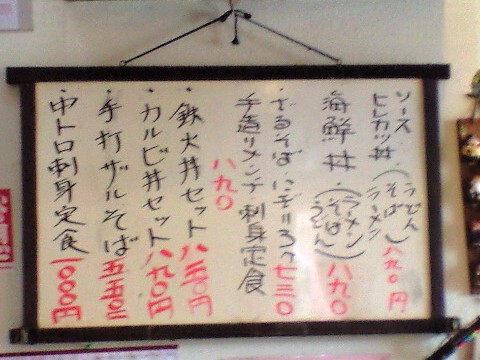 ソース
ヒレカツ丼(うどん そば ラーメン)八九〇円
海鮮丼(ラーメン そば うどん)八九〇
・ざるそば・にぎり3ヶ七三〇
手造りメンチ・刺身定食
八九〇
・鉄火丼セット八五〇円
・カルビ丼セット八九〇円
・手打ザルそば五五〇円
・中トロ刺身定食一〇〇〇円